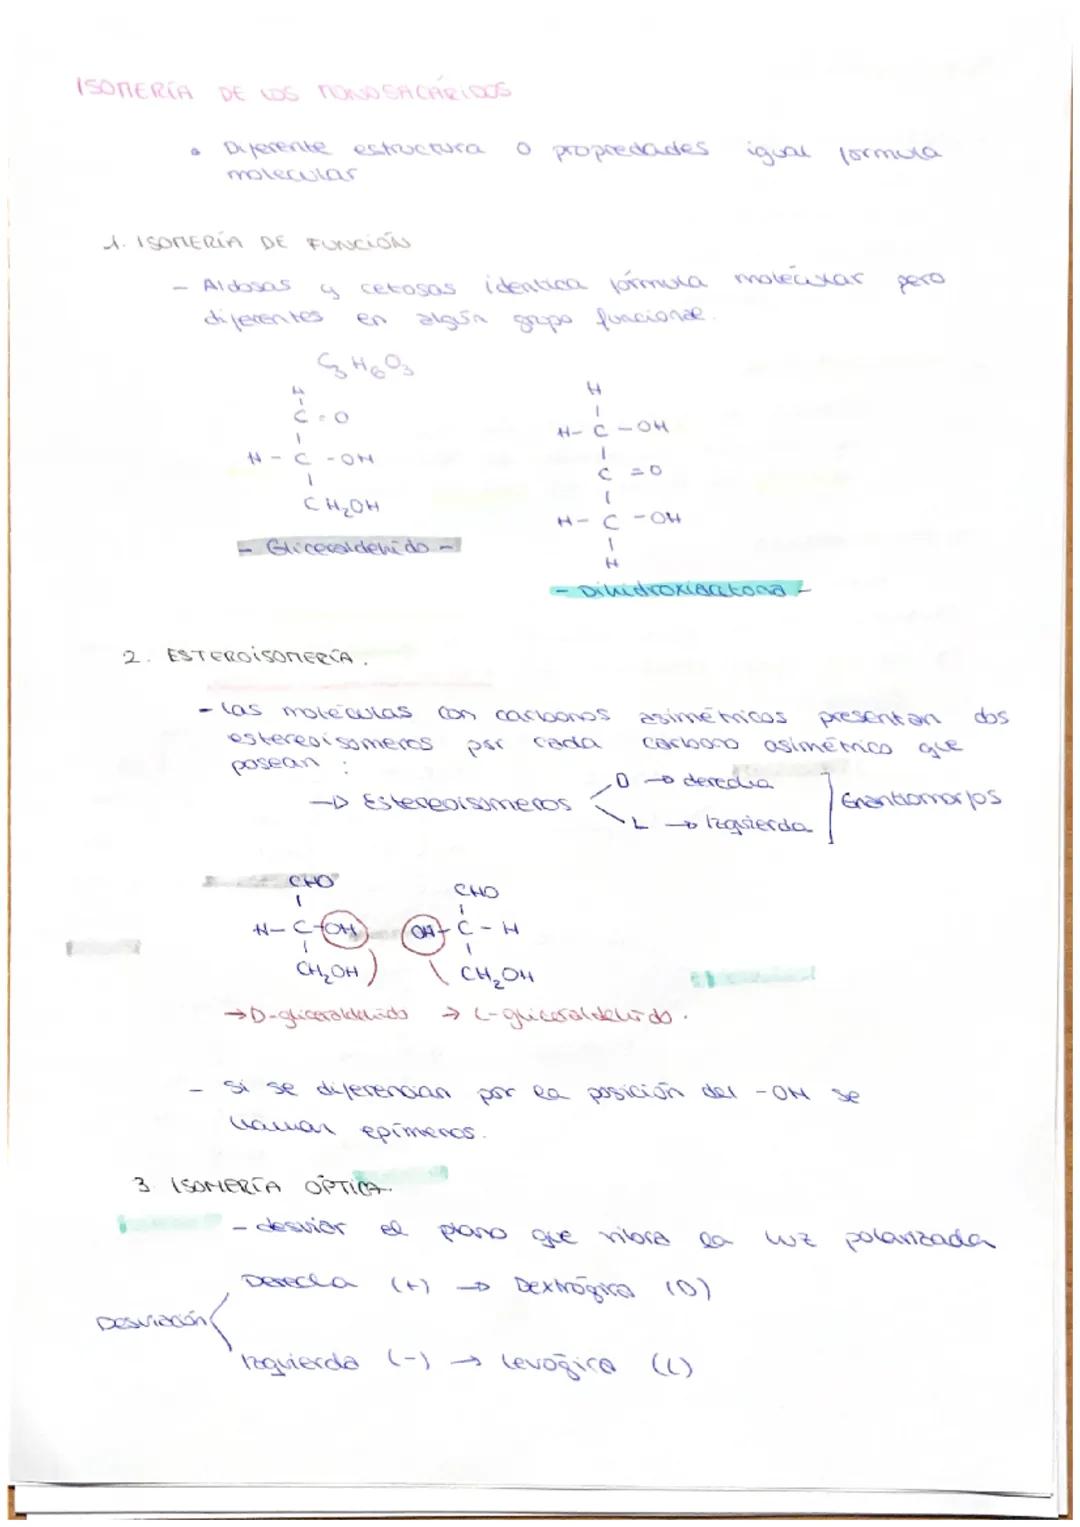 ISOMERÍA DE LOS MONOSACÁRIDOS
• Diferente estructura o propiedades igual formula
molecular
1. ISOMERÍA DE FUNCIÓN
- Aldosas y cetosas identica fórmula molecular pero
diferentes en algún grupo funcional.
C3H6O3
H
C=O
H-C-OH
CH2OH
- Gliceraldehido -
H
H-C-OH
C=O
H-C-OH
H
- Dihidroxiacetona -
2. ESTEROISOMERÍA.
- Las moléculas con carbonos asimétricos presentan dos
estereoisomeros por cada carbono asimétrico que
posean :
→ Estereoisomeros
D → derecha
L → Izquierda
Enantiomorfos
CHO
H-C-OH
CH2OH
→ D-gliceraldehido
CHO
OH-C-H
CH2OH
→ L-gliceraldehido.
- Si se diferencian por la posición del -OH se
llaman epímeros.
3 ISOMERÍA OPTICA.
- desviar el plano que vibra la luz polarizada
Desviación
Derecha (+) → Dextrógira (D)
Izquierda (-) → Levógira (L)